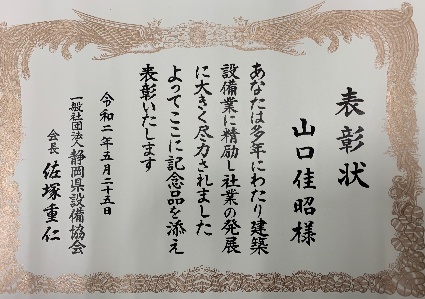 表彰状
山口佳昭様
あなたは多年にわたり建築
設備業に精励し社業の発展
に大きく尽力されました
よってここに記念品を添え
表彰いたします
令和二年五月二十五日
一般社団法人静岡県設備協会
会長佐塚重仁